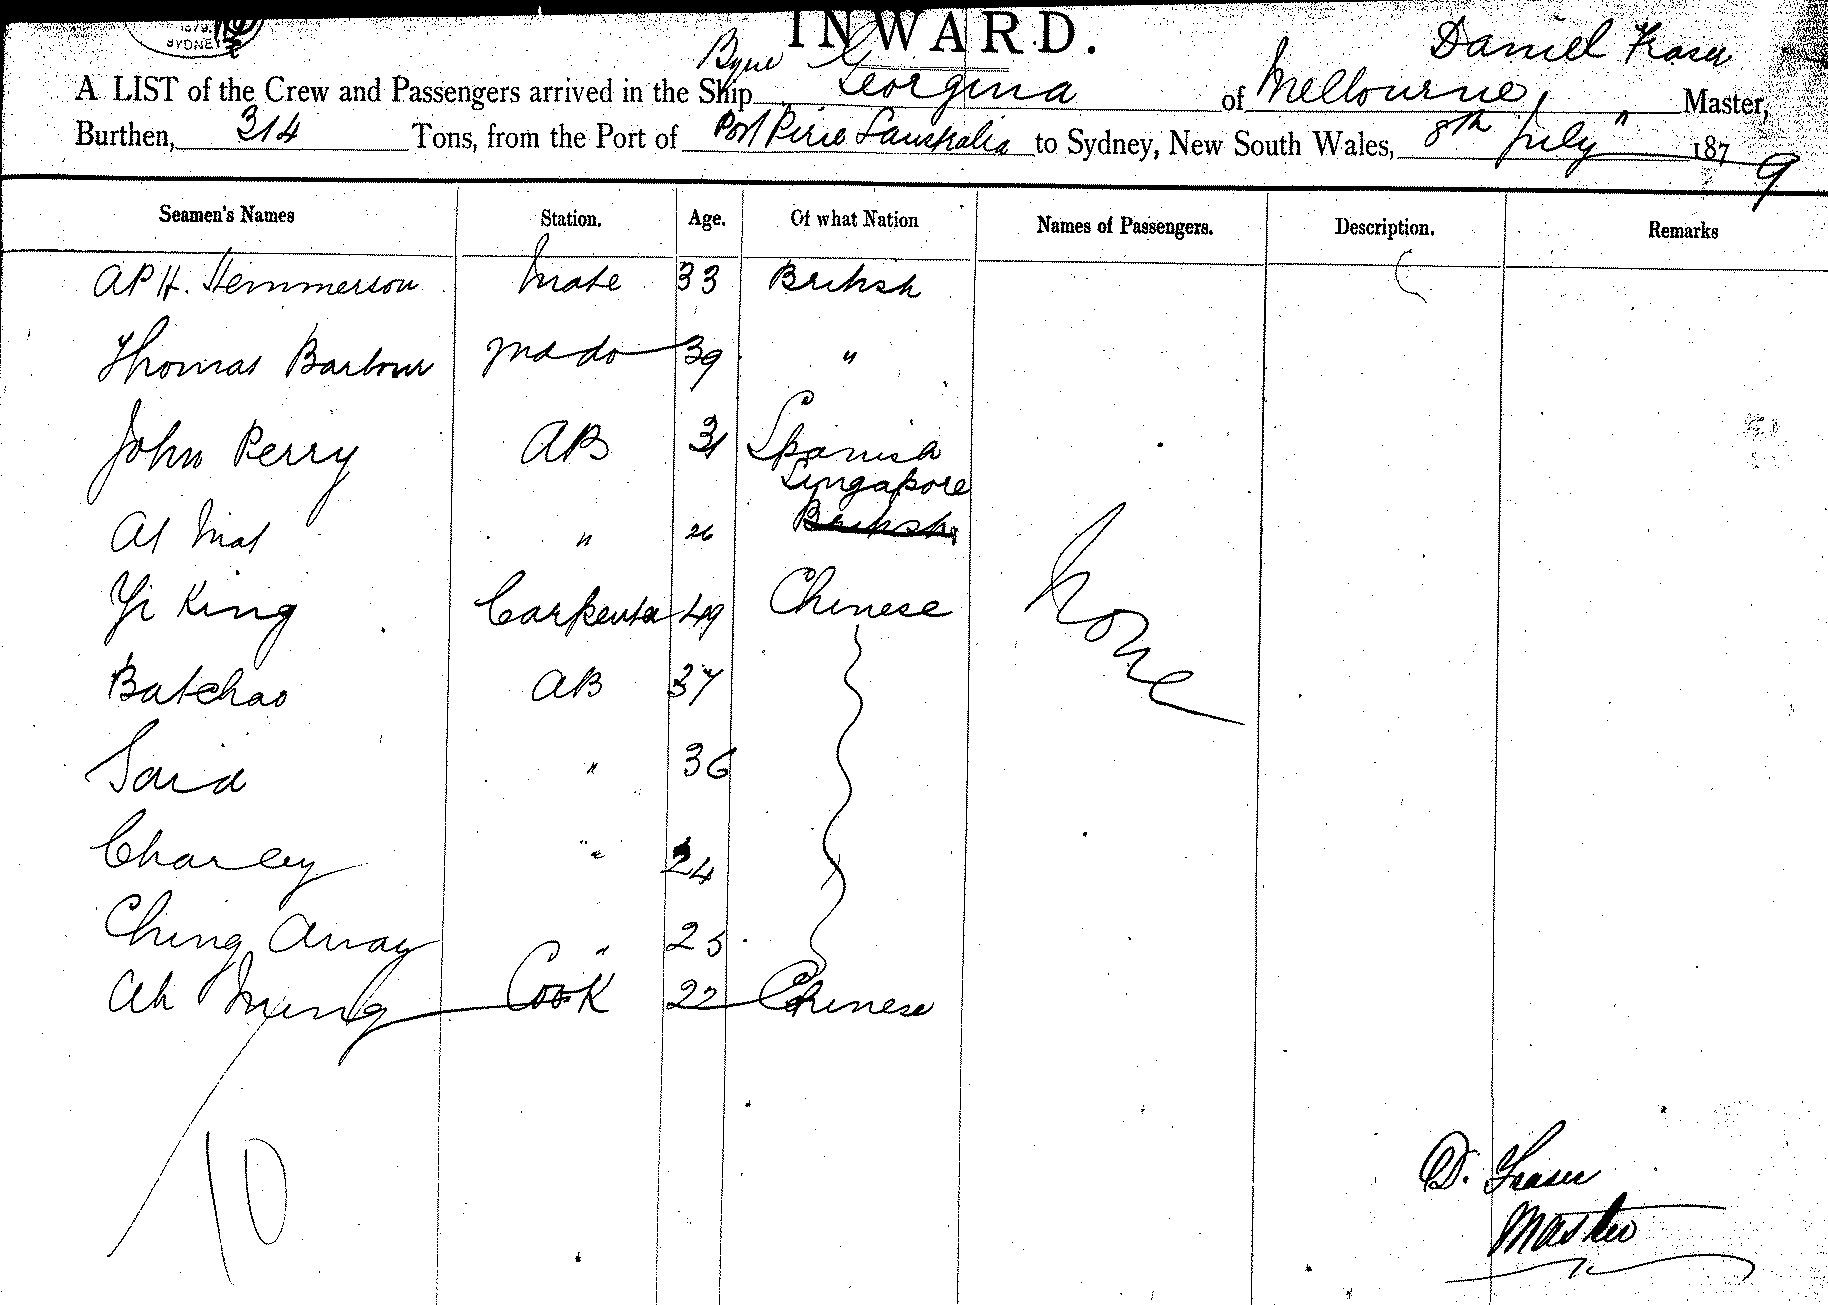 1879
SYDNEY
INWARD.
Daniel Fraser
A LIST of the Crew and Passengers arrived in the Ship Georgina of Melbourne, Master,
Burthen, 314 Tons, from the Port of Port Pirie S australia to Sydney, New South Wales, 8th July " 1879
Seamen's Names Station. Age. Of what Nation Names of Passengers. Description. Remarks
AP H. Hemmerson Mate 33 British
Thomas Barbour 2nd do 39 "
John Perry AB 31 Spanish
Singapore
Al Mat " 26 British
Yi King Carpenter 49 Chinese
None
Batchao AB 37
Said " 36
Charley " 24
Ching Array " 25
Ah Ming Cook 22 Chinese
10
D. Fraser
Master